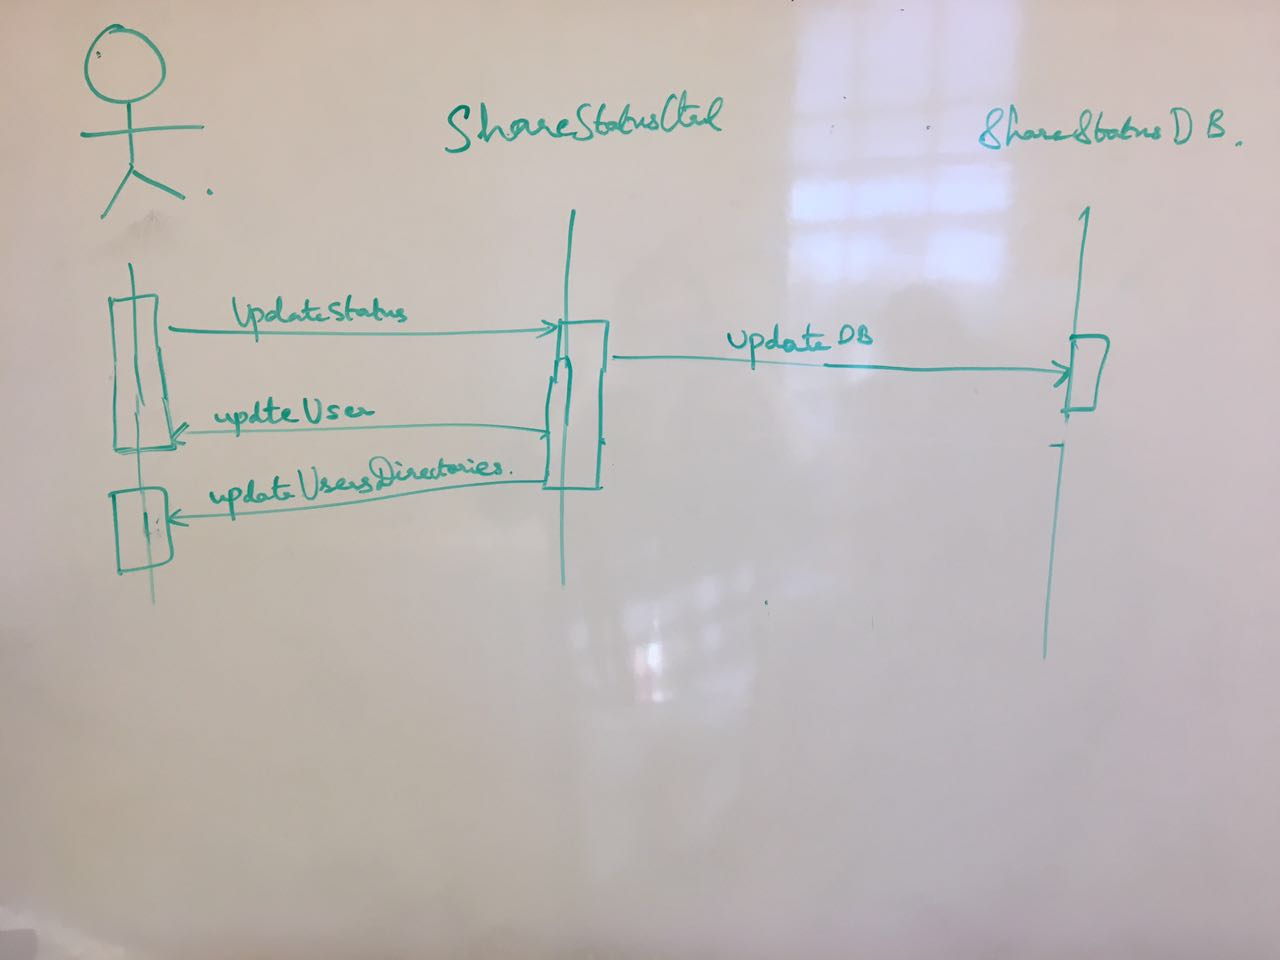 ShareStatusCtrl
ShareStatusDB.
UpdateStatus
UpdateDB
updteUser
updateUsersDirectories.